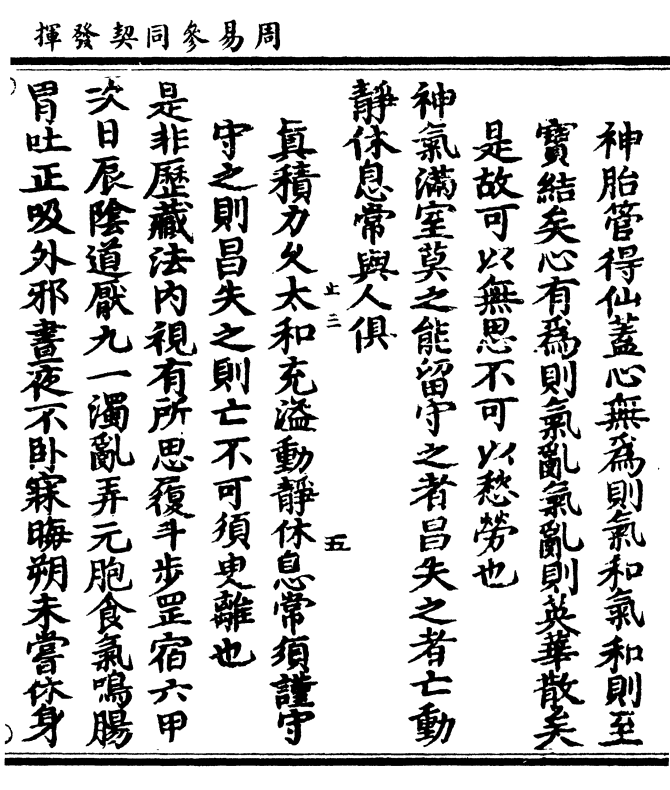 周易參同契發揮
神胎管得仙蓋心無為則氣和氣和則至
寶結矣心有為則氣亂氣亂則英華散矣
是故可以無思不可以愁勞也
神氣滿室莫之能留守之者昌失之者亡動
靜休息常與人俱
止二
五
眞積力久太和充溢動靜休息常須謹守
守之則昌失之則亡不可須臾離也
是非歷藏法內視有所思履斗步罡宿六甲
次日辰陰道厭九一濁亂弄元胞食氣鳴腸
胃吐正吸外邪晝夜不卧寐晦朔未嘗休身